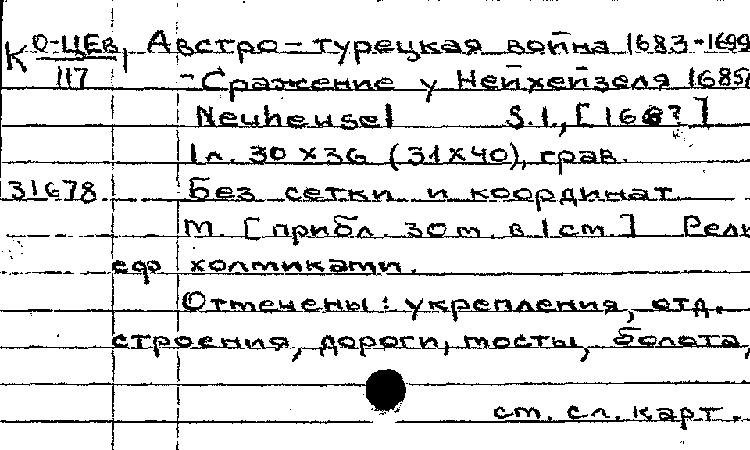 К О-ЦЕв, Австро-турецкая война 1683-1699
117 -Сражение у Нейхейзеля 1685
Neuheusel S.l., [166?]
1л. 30х36 (31х40), грав.
31678 Без сетки и координат
М. [прибл. 30м. в 1см.] Рель
еф холмиками.
Отмечены: укрепления, отд.
строения, дороги, мосты, болота,
см. сл. карт.